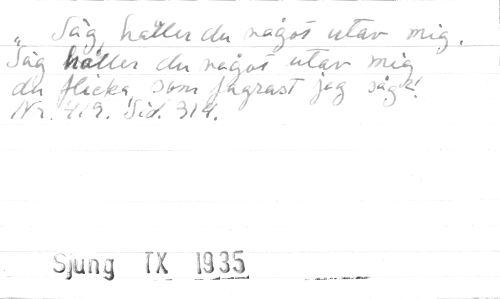 „ Säg, håller du något utav mig.
Säg håller du något utav mig
du flicka, som fagrast jag såg!
Nr. 419. Sid. 314.
Sjung IX 1935